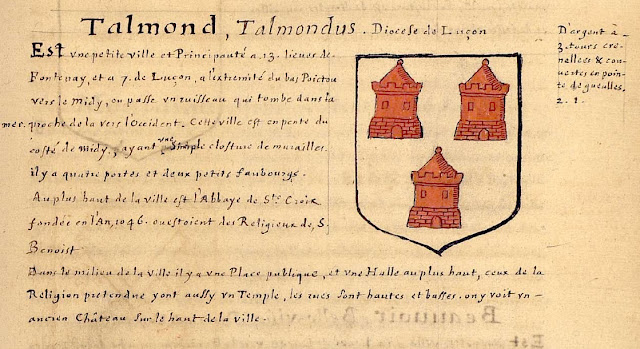 Talmond, Talmondus. Diocese de Luçon
Est vne petite ville et Principauté a 13. lieues de
Fontenay, et a 7. de Luçon, a l'extremité du bas Poictou
vers le midy, ou passe vn ruisseau qui tombe dans la
mer, proche de la vers l'Occident. Cette ville est en pente du
costé de midy, ayant vne simple closture de murailles.
il y a quatre portes et deux petits fauxbourgs.
Au plus haut de la ville est l'Abbaye de Ste Croix
fondée en l'An, 1046. ou estoient des Religieux de, S.
Benoist
Dans le milieu de la ville il y a vne Place publique, et vne Halle au plus haut, ceux de la
Religion pretendue y ont aussy vn Temple, les rues sont hautes et basses. on y voit vn
ancien Château sur le haut de la ville.
D'argent à
3. tours cre-
nellees & cou-
uertes en poin-
te de gueulles.
2. 1.